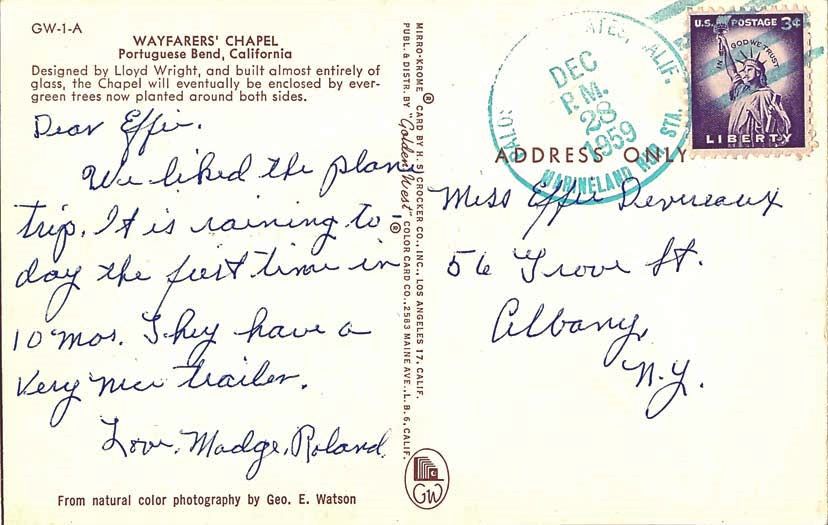 GW-1-A
WAYFARERS' CHAPEL
Portuguese Bend, California
Designed by Lloyd Wright, and built almost entirely of
glass, the Chapel will eventually be enclosed by ever-
green trees now planted around both sides.
Dear Effie.
We liked the plane
trip. It is raining to
day the first time in
10 mos. They have a
very nice trailer.
Love, Madge, Roland
From natural color photography by Geo. E. Watson
MIRRO-KROME ® CARD BY H. S. CROCKER CO., INC., LOS ANGELES 17, CALIF.
PUBL. & DISTR. BY "Golden West" ® COLOR CARD CO., 2583 MAINE AVE., L. B. 6, CALIF.
GW
CALIF.
DEC
P.M.
28
1959
MARINELAND RUR STA.
U.S. POSTAGE 3¢
IN GOD WE TRUST
LIBERTY
ADDRESS ONLY
Miss Effie Devereaux
56 Grove St.
Albany,
N.Y.